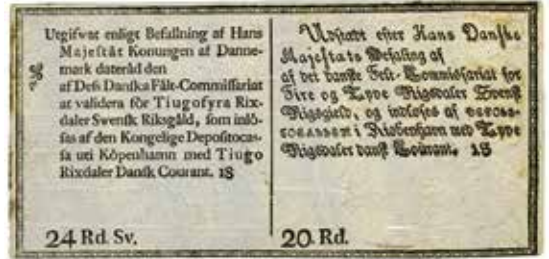 Utgifvat enligt Befallning af Hans
Majestät Konungen af Danne-
mark dateråd den
af Deß Danska Fält-Commissariat
at validera för Tiugofyra Rix-
daler Swensk Riksgåld, som inlö-
sas af den Kongelige Depositocas-
sa uti Köpenhamn med Tiugo
Rixdaler Dansk Courant. 18
24 Rd. Sv.
Udstædt efter Hans Danske
Majestæts Befaling af
af det danske Felt-Commissariat for
Fire og Tyve Rigsdaler Svensk
Rigsgield, og indløses af
i Kiøbenhavn med Tyve
Rigsdaler dansk Courant. 18
20 Rd.